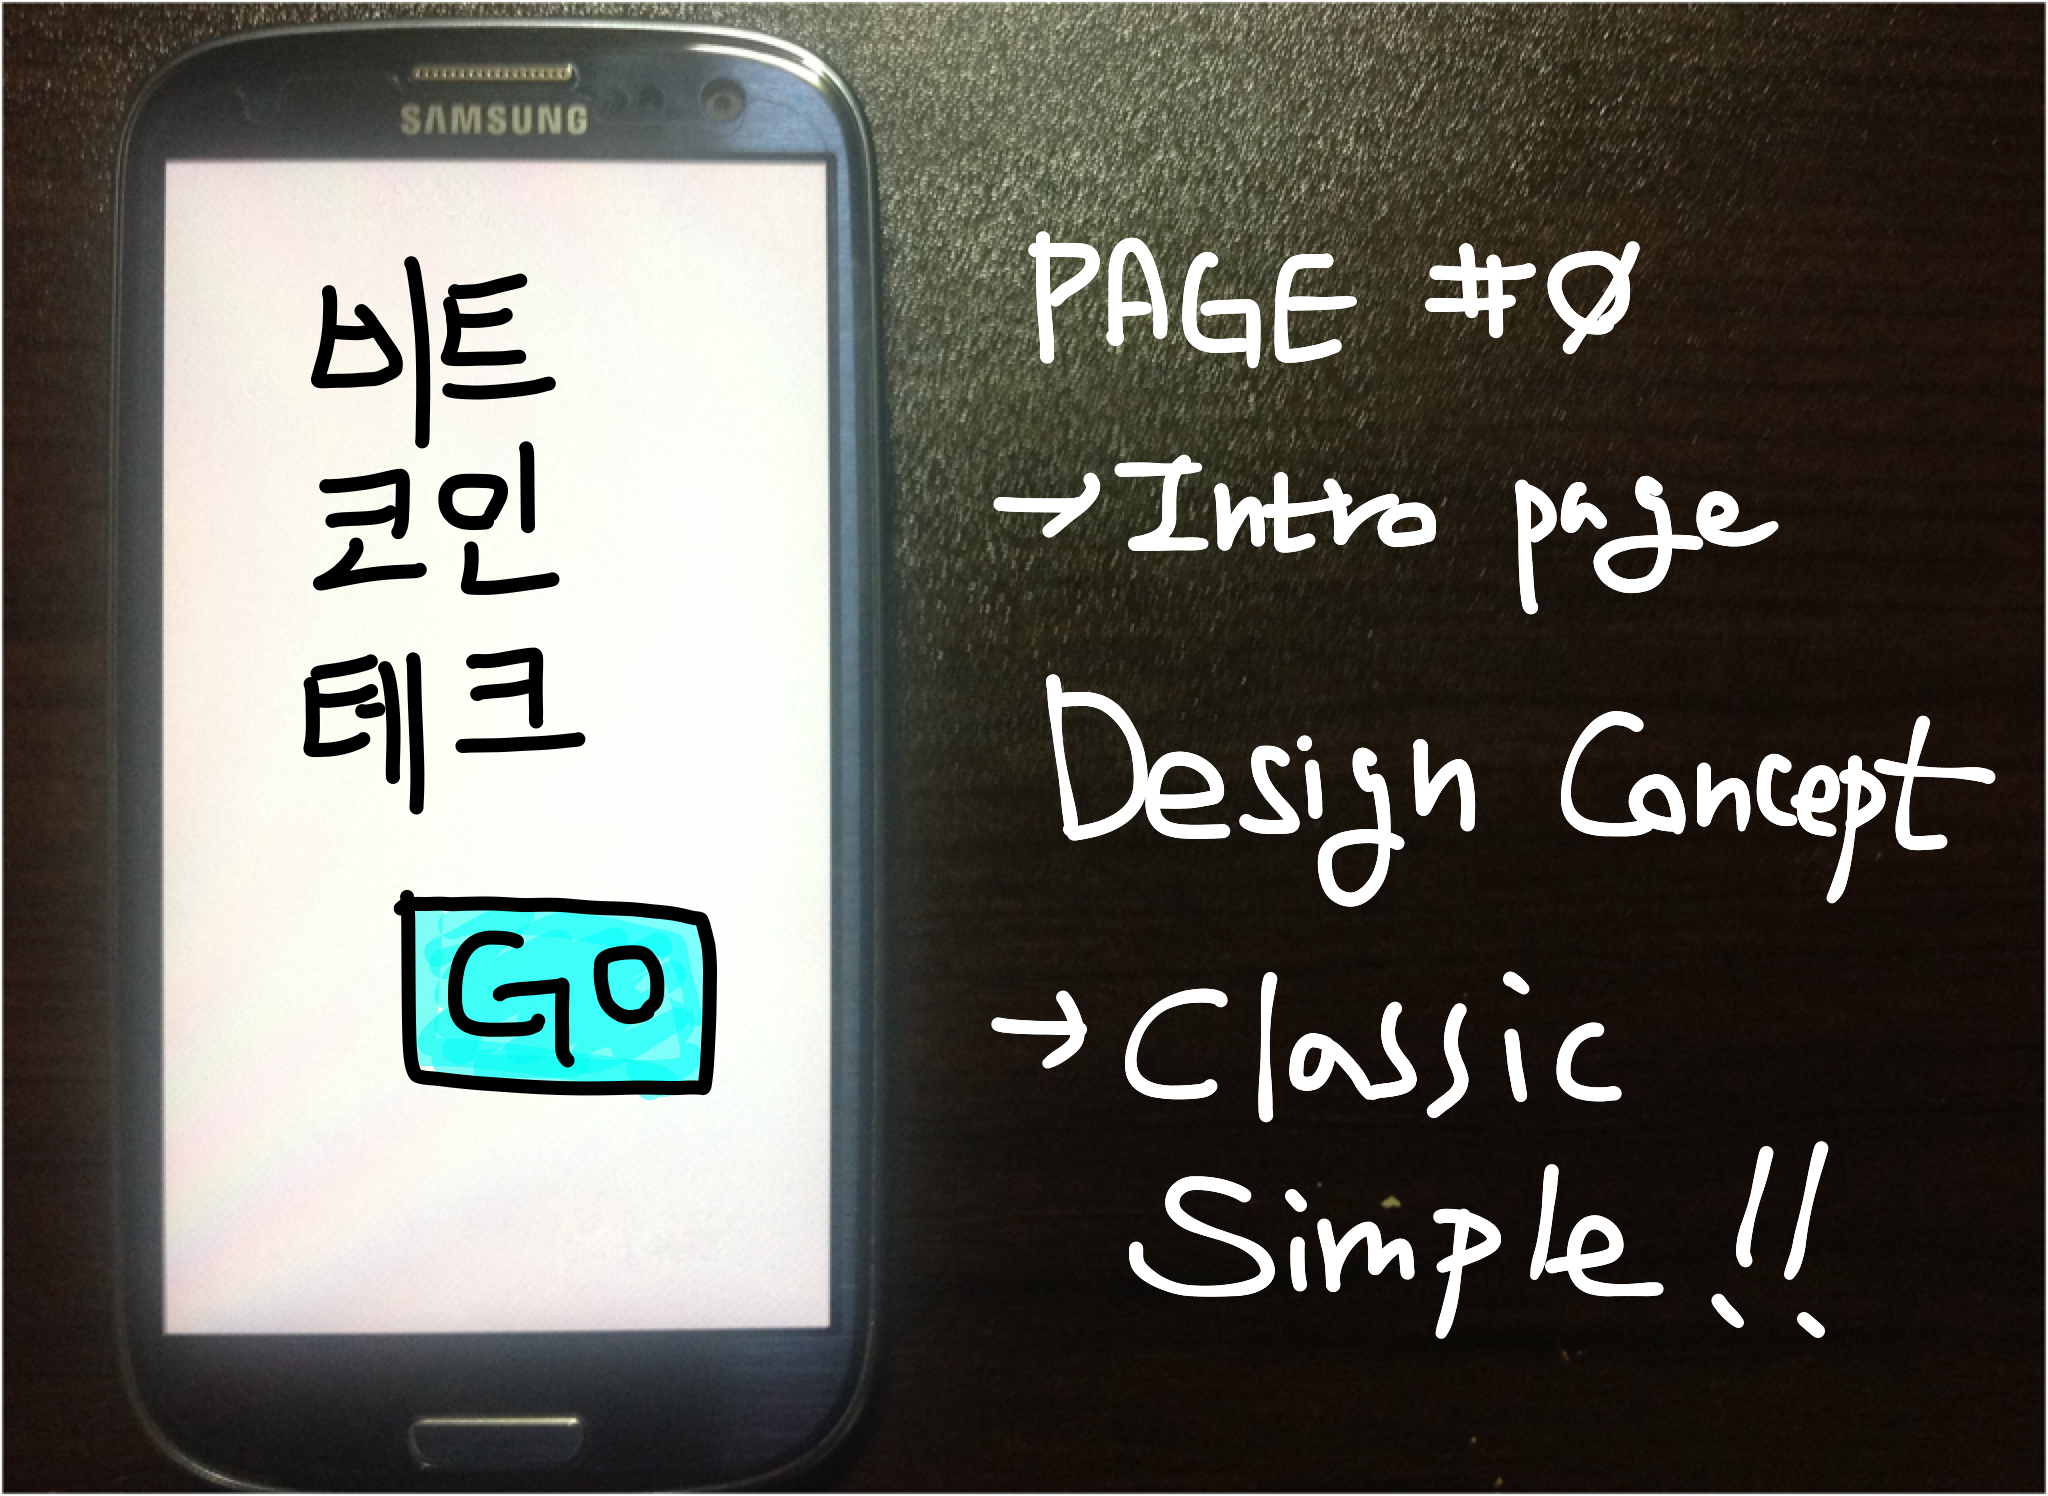 SAMSUNG
비트
코인
테크
GO
PAGE #0
→ Intro page
Design Concept
→ Classic
Simple !!